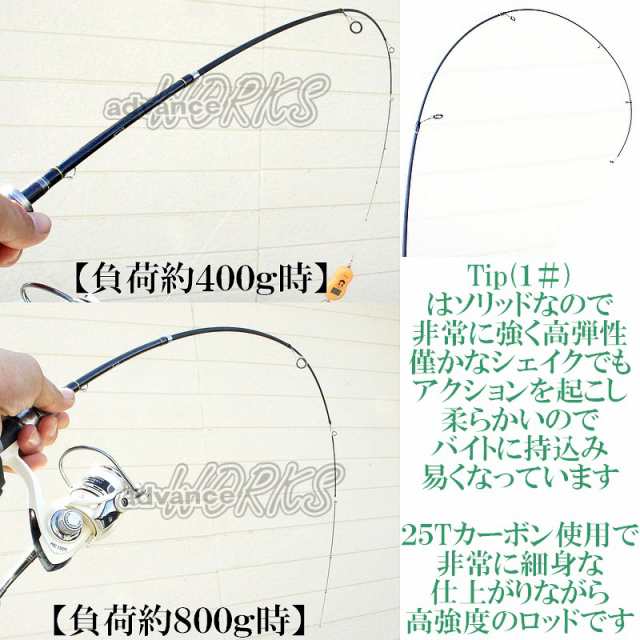 advance WORKS
【負荷約400g時】
Tip(1#)
はソリッドなので
非常に強く高弾性
僅かなシェイクでも
アクションを起こし
柔らかいので
バイトに持込み
易くなっています
advance WORKS
25Tカーボン使用で
非常に細身な
仕上がりながら
高強度のロッドです
【負荷約800g時】